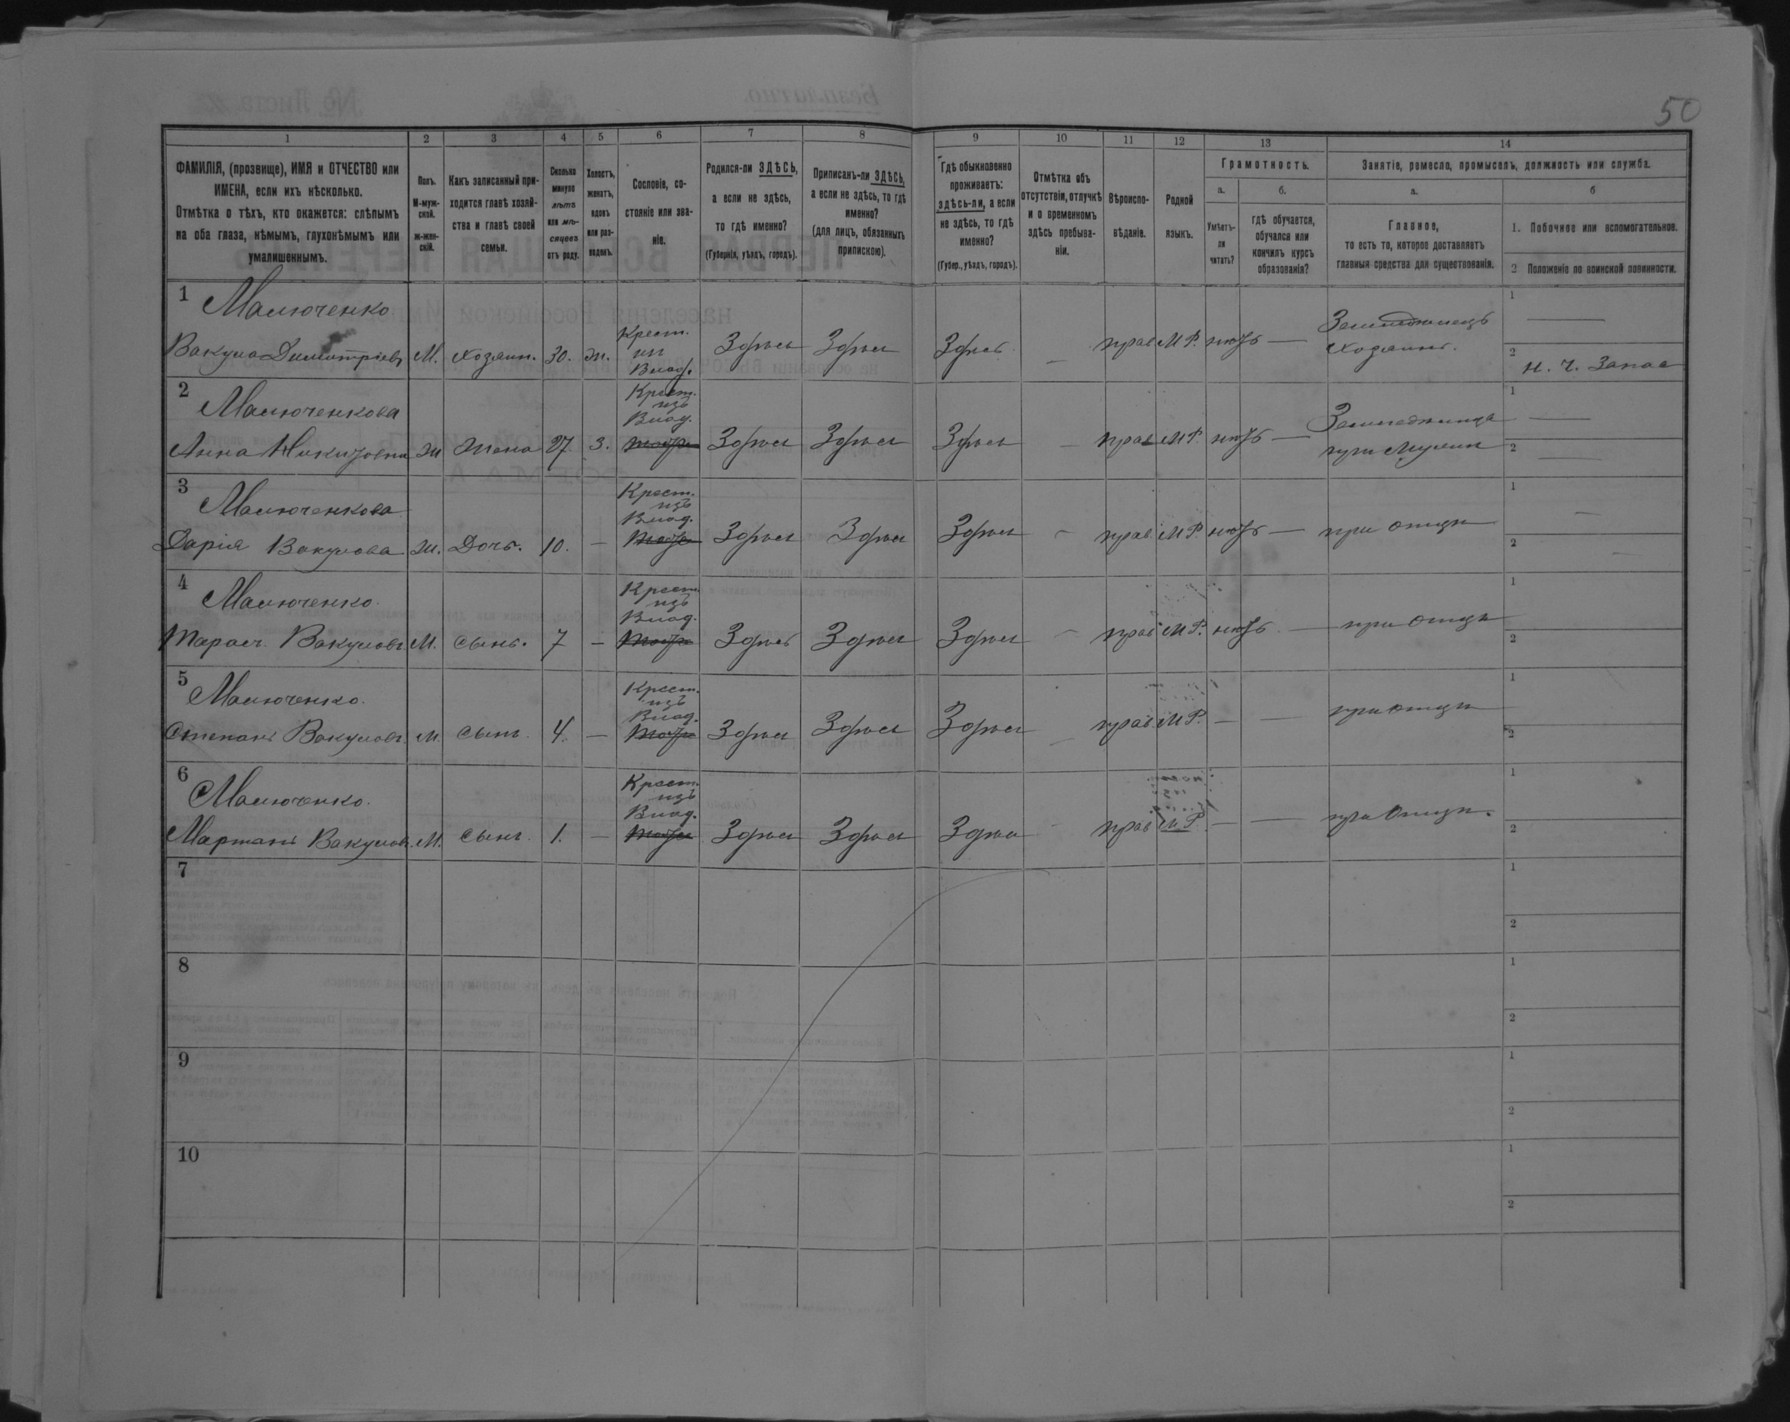 50
1 2 3 4 5 6 7 8 9 10 11 12 13 14
ФАМИЛІЯ, (прозвище), ИМЯ и ОТЧЕСТВО или ИМЕНА, если ихъ нѣсколько.
Отмѣтка о тѣхъ, кто окажется: слѣпымъ на оба глаза, нѣмымъ, глухонѣмымъ или умалишеннымъ.
Полъ.
М-муж-
ской.
Ж-жен-
скій.
Какъ записанный при-
ходится главѣ хозяй-
ства и главѣ своей
семьи.
Сколько
минуло
лѣтъ
или мѣ-
сяцевъ
отъ роду.
Холостъ,
женатъ,
вдовъ
или раз-
веденъ.
Сословіе, со-
стояніе или зва-
ніе.
Родился-ли ЗДѢСЬ,
а если не здѣсь,
то гдѣ именно?
(Губернія, уѣздъ, городъ).
Приписанъ-ли ЗДѢСЬ,
а если не здѣсь, то гдѣ
именно?
(для лицъ, обязанныхъ
припискою).
Гдѣ обыкновенно
проживаетъ:
здѣсь-ли, а если
не здѣсь, то гдѣ
именно?
(Губер., уѣздъ, городъ).
Отмѣтка объ
отсутствіи, отлучкѣ
и о временномъ
здѣсь пребыва-
ніи.
Вѣроиспо-
вѣданіе.
Родной
языкъ.
Грамотность.
а.
Умѣетъ-
ли
читать?
б.
гдѣ обучается,
обучался или
кончилъ курсъ
образованія?
Занятіе, ремесло, промыселъ, должность или служба.
а.
Главное,
то есть то, которое доставляетъ
главныя средства для существованія.
б
1. Побочное или вспомогательное.
2 Положеніе по воинской повинности.
1 Малюченко
Вакула Димитріевъ М. хозяин. 30. Ж. Крест. Влад. Здѣсь Здѣсь Здѣсь — прав М.Р. нѣтъ — Земледѣлецъ хозяинъ.
1 —
2 н. ч. Запас
2 Малюченкова
Анна Никитовна Ж Жена 27 З. Крест. изъ Влад. Здѣсь Здѣсь Здѣсь — прав М.Р. нѣтъ — при мужѣ
1 —
2 —
3 Малюченкова
Дарія Вакулова Ж. Дочь. 10. — Крест. изъ Влад. Здѣсь Здѣсь Здѣсь — прав М.Р. нѣтъ — при отцѣ
1 —
2 —
4 Малюченко.
Тарасъ Вакуловъ М. сынъ. 7 — Крест. изъ Влад. Здѣсь Здѣсь Здѣсь — прав М.Р. нѣтъ. — при отцѣ
1
2
5 Малюченко.
Степанъ Вакуловъ М. сынъ 4. — Крест. изъ Влад. Здѣсь Здѣсь Здѣсь — прав М.Р. — — при отцѣ
1
2
6 Малюченко.
Вакуловъ М. сынъ. 1. — Крест. изъ Влад. Здѣсь Здѣсь Здѣсь — прав М.Р. — — при отцѣ.
1
2
7
1
2
8
1
2
9
1
2
10
1
2